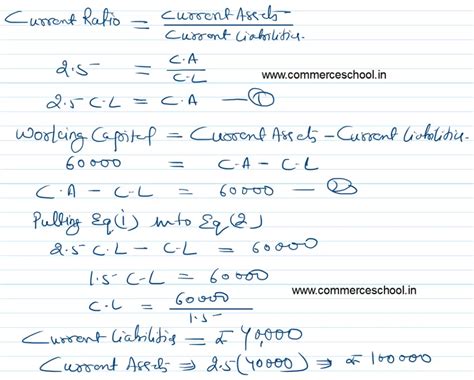 Current Ratio = Current Assets / Current Liabilities.
2.5 = C.A / C.L
www.commerceschool.in
2.5 C.L = C.A — ①
Working Capital = Current Assets - Current Liabilities.
60000 = C.A - C.L
C.A - C.L = 60000 — ②
Putting Eq(i) into Eq(2)
2.5 C.L - C.L = 60000
1.5 C.L = 60000
www.commerceschool.in
C.L = 60000 / 1.5
Current Liabilities = ₹ 40,000
Current Assets ⇒ 2.5(40000) ⇒ ₹ 100000